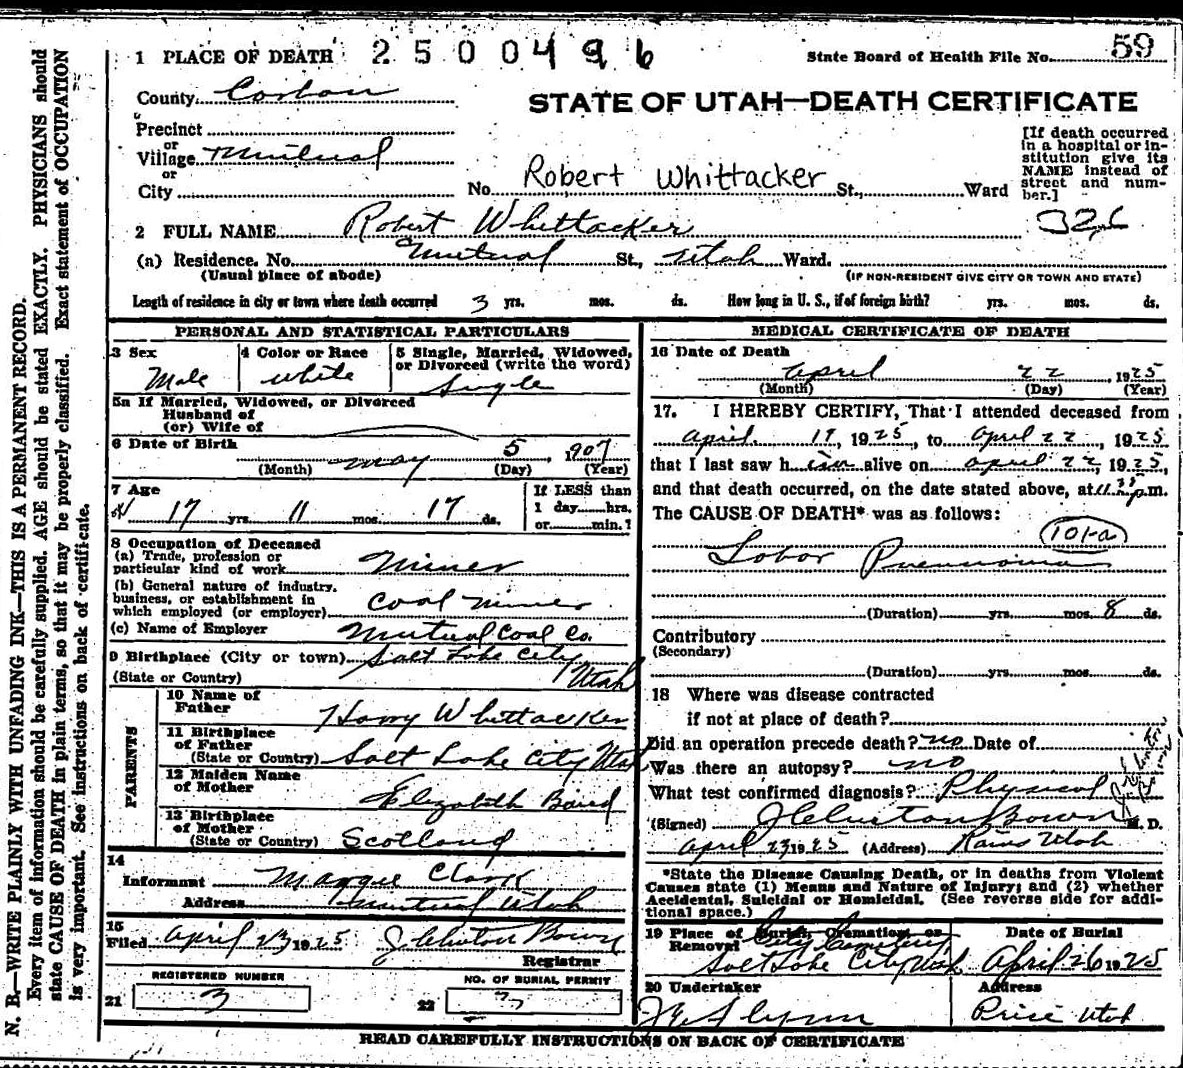 1 PLACE OF DEATH 2500496
State Board of Health File No. 59
County Carbon
STATE OF UTAH—DEATH CERTIFICATE
Precinct
or
Village Mutual
or
City
No. Robert Whittacker St., Ward
[If death occurred in a hospital or institution give its NAME instead of street and number.]
2 FULL NAME Robert Whittacker
326
(a) Residence. No. Mutual St., Utah Ward.
(Usual place of abode)
(IF NON-RESIDENT GIVE CITY OR TOWN AND STATE)
Length of residence in city or town where death occurred 3 yrs. mos. ds. How long in U. S., if of foreign birth? yrs. mos. ds.
PERSONAL AND STATISTICAL PARTICULARS
3 Sex
Male
4 Color or Race
white
5 Single, Married, Widowed, or Divorced (write the word)
Single
5a If Married, Widowed, or Divorced
Husband of
(or) Wife of
6 Date of Birth
May 5, 1907
(Month) (Day) (Year)
7 Age
17 yrs. 11 mos. 17 ds.
If LESS than
1 day hrs.
or min.?
8 Occupation of Deceased
(a) Trade, profession or
particular kind of work Miner
(b) General nature of industry,
business, or establishment in
which employed (or employer) Coal Miner
(c) Name of Employer Mutual Coal Co.
9 Birthplace (City or town) Salt Lake City
(State or Country) Utah
PARENTS
10 Name of
Father Harry Whittacker
11 Birthplace
of Father
(State or Country) Salt Lake City Utah
12 Maiden Name
of Mother Elizabeth Baird
13 Birthplace
of Mother
(State or Country) Scotland
14
Informant Clark
Address Mutual Utah
15
Filed April 23, 1925 J Clinton Bown
Registrar
REGISTERED NUMBER
21 3
NO. OF BURIAL PERMIT
22 3
MEDICAL CERTIFICATE OF DEATH
16 Date of Death
April 22, 1925
(Month) (Day) (Year)
17. I HEREBY CERTIFY, That I attended deceased from
April 1925, to April 22, 1925
that I last saw h im alive on April 22, 1925,
and that death occurred, on the date stated above, at 11 p.m.
The CAUSE OF DEATH* was as follows:
101-a
Lobar Pneumonia
(Duration) yrs. mos. 8 ds.
Contributory
(Secondary)
(Duration) yrs. mos. ds.
18 Where was disease contracted
if not at place of death?
Did an operation precede death? no Date of
Was there an autopsy? no
What test confirmed diagnosis? Physical
(Signed) J Clinton Bown M. D.
April 23, 1925 (Address) Rains Utah
*State the Disease Causing Death, or in deaths from Violent
Causes state (1) Means and Nature of Injury; and (2) whether
Accidental, Suicidal or Homicidal. (See reverse side for addi-
tional space.)
19 Place of Burial, Cremation, or
Removal City Cemetery
Salt Lake City Utah
Date of Burial
April 26 1925
20 Undertaker
J E Flynn
Address
Price Utah
READ CAREFULLY INSTRUCTIONS ON BACK OF CERTIFICATE
N. B.—WRITE PLAINLY WITH UNFADING INK—THIS IS A PERMANENT RECORD.
Every item of information should be carefully supplied. AGE should be stated EXACTLY. PHYSICIANS should
state CAUSE OF DEATH in plain terms, so that it may be properly classified. Exact statement of OCCUPATION
is very important. See instructions on back of certificate.